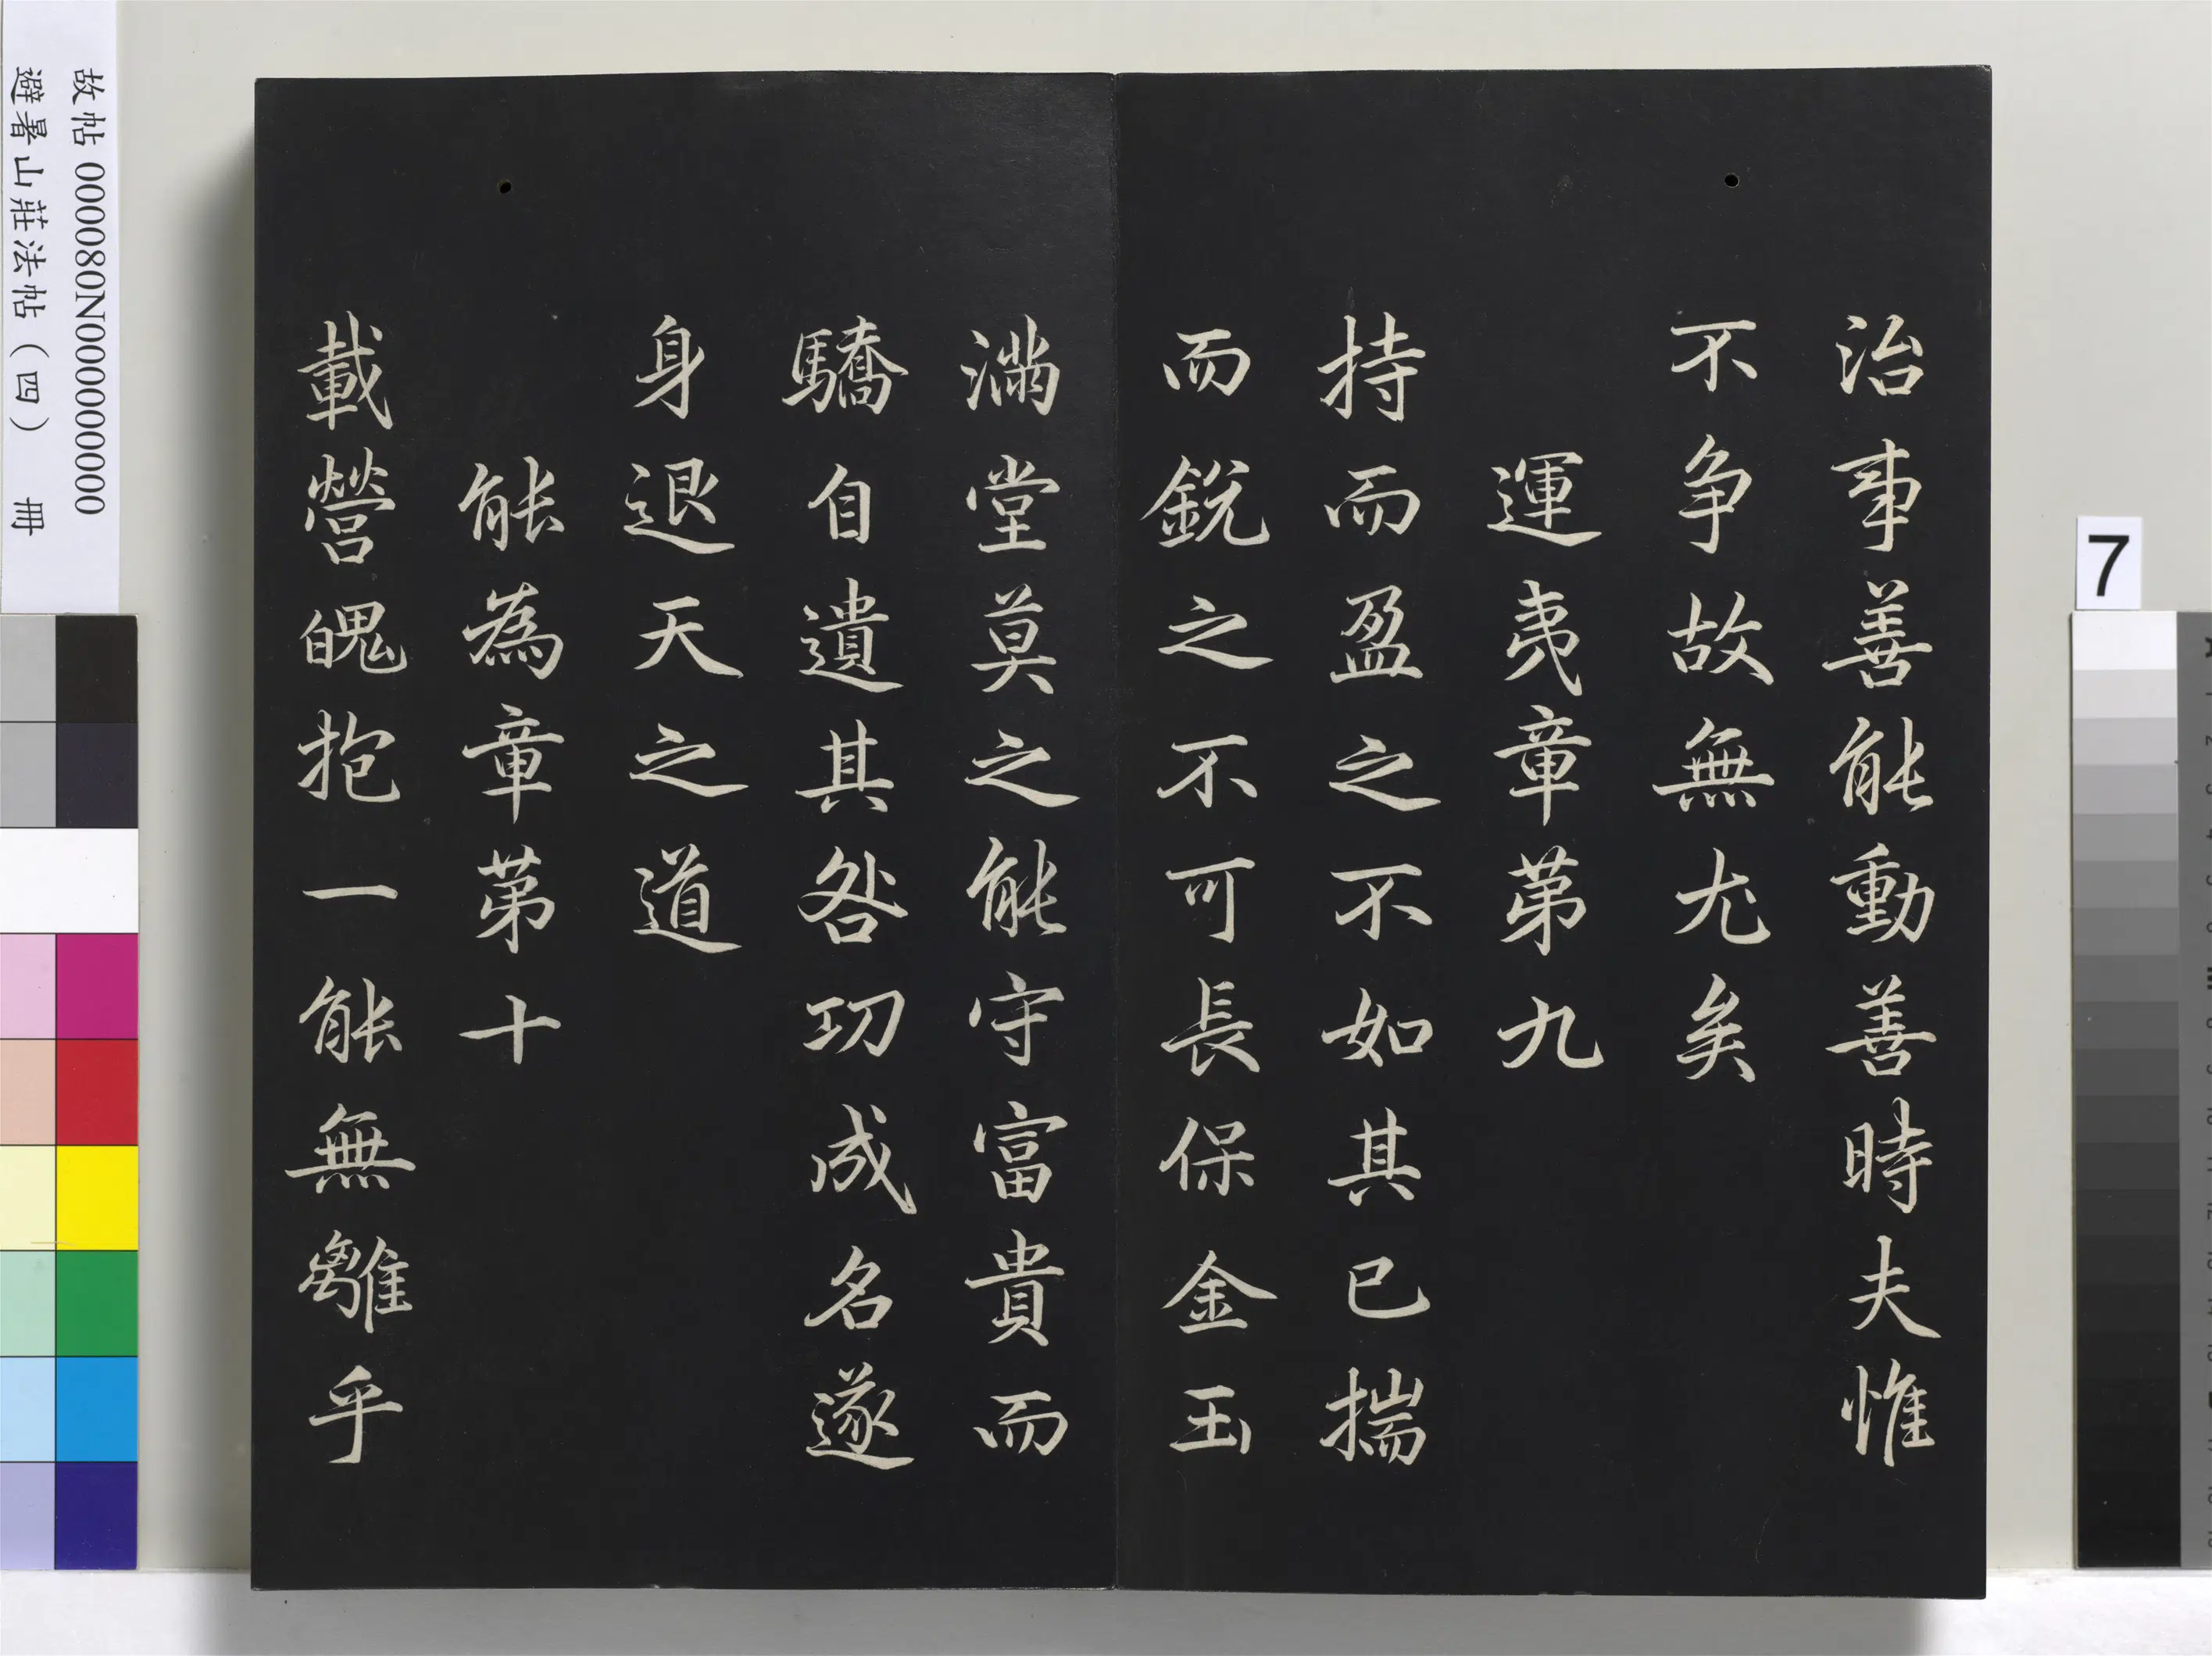 治事善能動善時夫惟
不争故無尤矣
運夷章苐九
持而盈之不如其已揣
而銳之不可長保金玉
滿堂莫之能守富貴而
驕自遺其咎功成名遂
身退天之道
能為章苐十
載營魄抱一能無離乎
故帖 000080N000000000
避暑山莊法帖（四） 冊
7